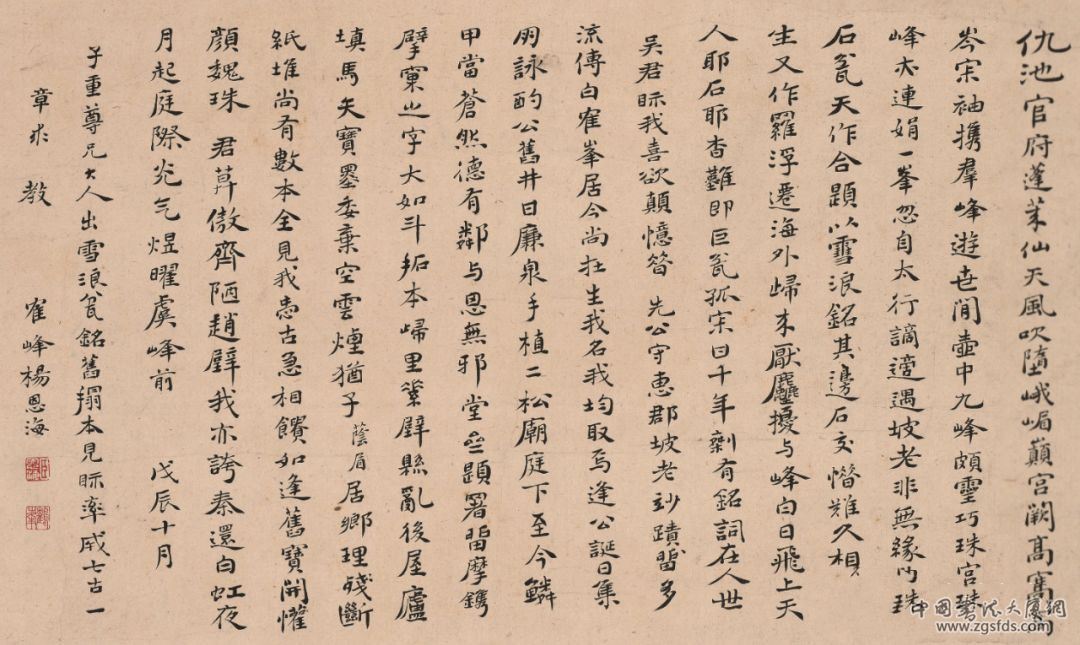 仇池官府蓬莱仙天風吹墮峨嵋巔宮闕高寒
岑宋袖攜羣峰遊世間壺中九峰頗靈巧珠宮
峰亦連娟一峯忽自太行謫適遇坡老非無緣
石瓮天作合題以雪浪銘其邊石交憯難久相
生又作羅浮遷海外歸來厭塵擾与峰白日飛上天
人耶石耶杳難即巨瓮孤宋日千年剩有銘詞在人世
吳君眎我喜欲顛憶昝 先公守惠郡坡老玅蹟畱多
流傳白崔峯居今尚在生我名我均取焉逢公誕日集
朋詠酌公舊井曰廉泉手植二松廟庭下至今鱗
甲當蒼然德有鄰与思無邪堂並題署畱摩鐫
擘窠之字大如斗拓本歸里槃壁縣亂後屋廬
填馬矢寶墨委棄空雲煙猶子蔭眉居鄉理殘斷
紙堆尚有數本全見我恋古急相饋如逢舊寶開懽
顏魏珠 君莫傲齊陋趙璧我亦誇秦還白虹夜
月起庭際炎气煜曜虞峰前 戊辰十月
子重尊兄大人出雪浪瓮銘舊搨本見眎率成七古一
章求 教 崔峰楊恩海
中國書法大廈網
www.zgsfds.com